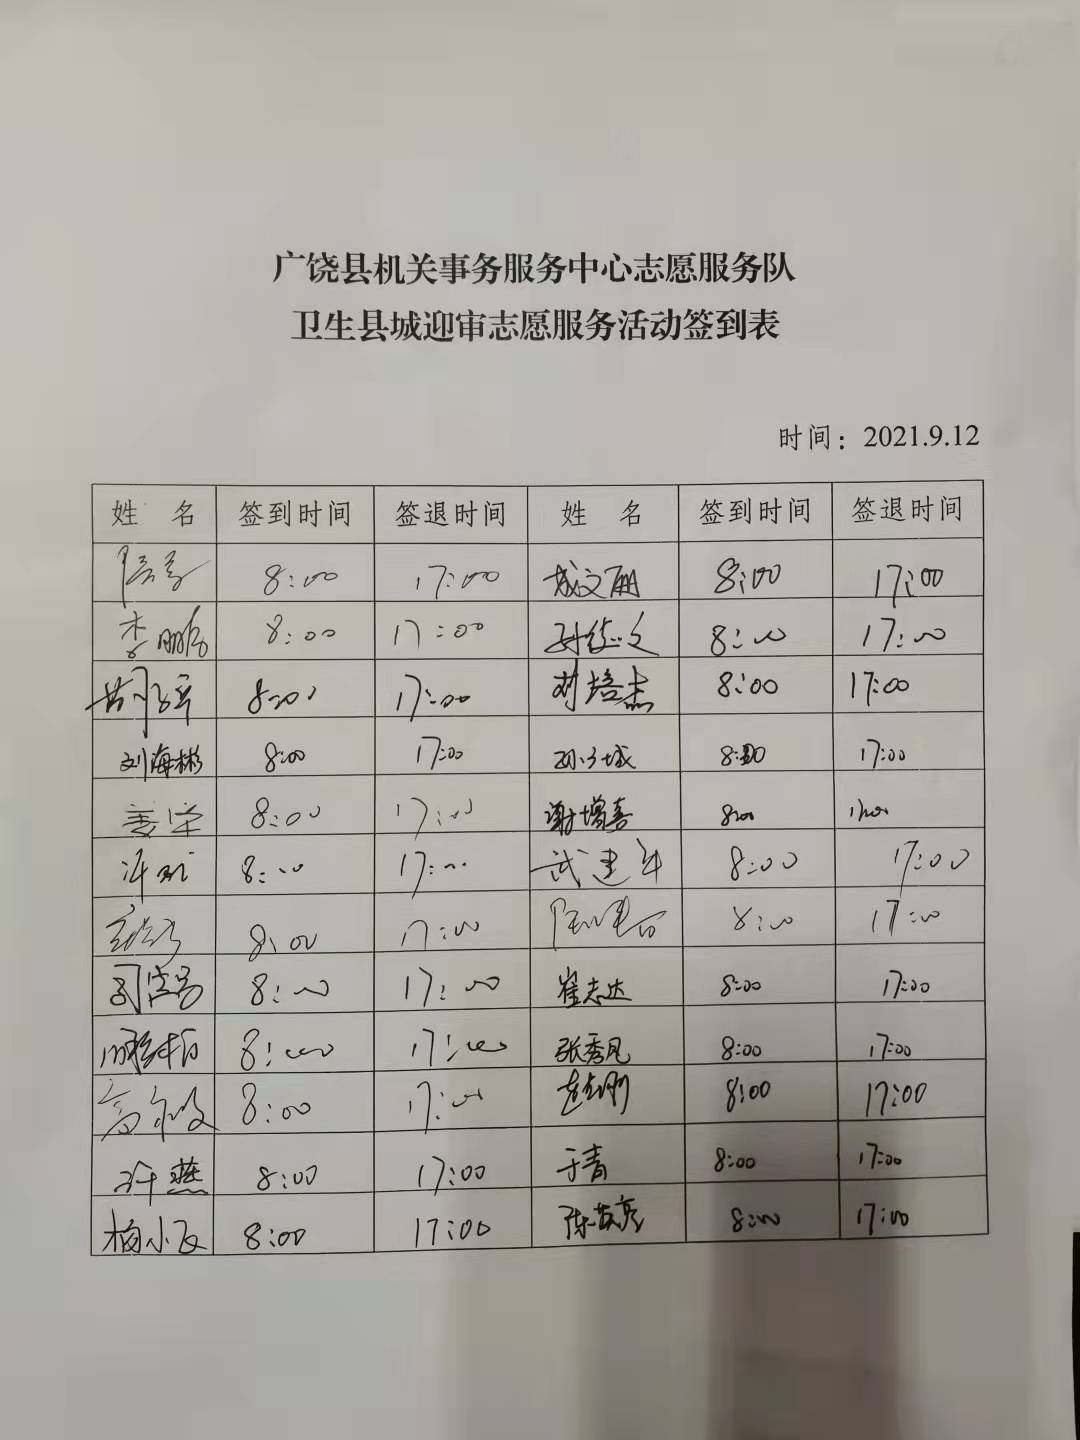 广饶县机关事务服务中心志愿服务队
卫生县城迎审志愿服务活动签到表
时间：2021.9.12
姓 名 签到时间 签退时间 姓 名 签到时间 签退时间
8:00 17:00 成文丽 8:00 17:00
李鹏 8:00 17:00 8:00 17:00
8:00 17:00 刘培杰 8:00 17:00
刘海彬 8:00 17:00 8:00 17:00
姜荣 8:00 17:00 谢增喜 8:00 17:00
8:00 17:00 武建军 8:00 17:00
8:00 17:00 8:00 17:00
8:00 17:00 崔志达 8:00 17:00
8:00 17:00 张秀凤 8:00 17:00
8:00 17:00 8:00 17:00
许燕 8:00 17:00 于青 8:00 17:00
杨小飞 8:00 17:00 8:00 17:00